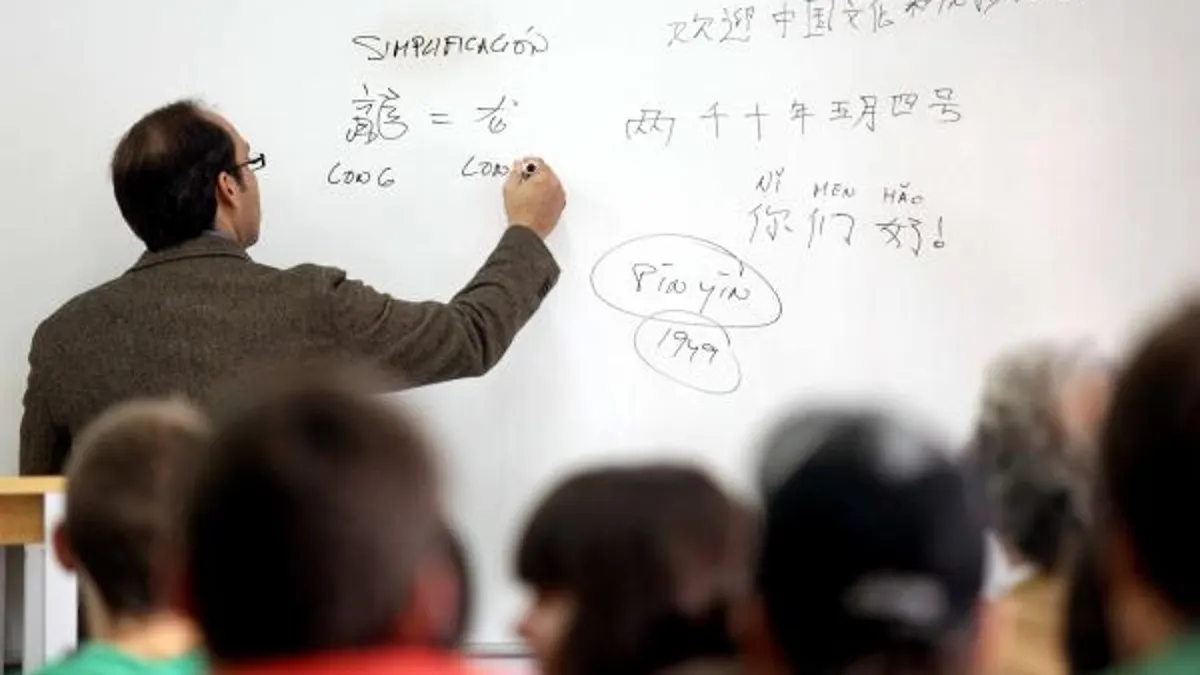 SIMPLIFICACIÓN
龍 = 龙
LONG LON
欢迎中国文化和
两千十年五月四号
NǏ MEN HǍO
你们好!
Pīn yīn
1949